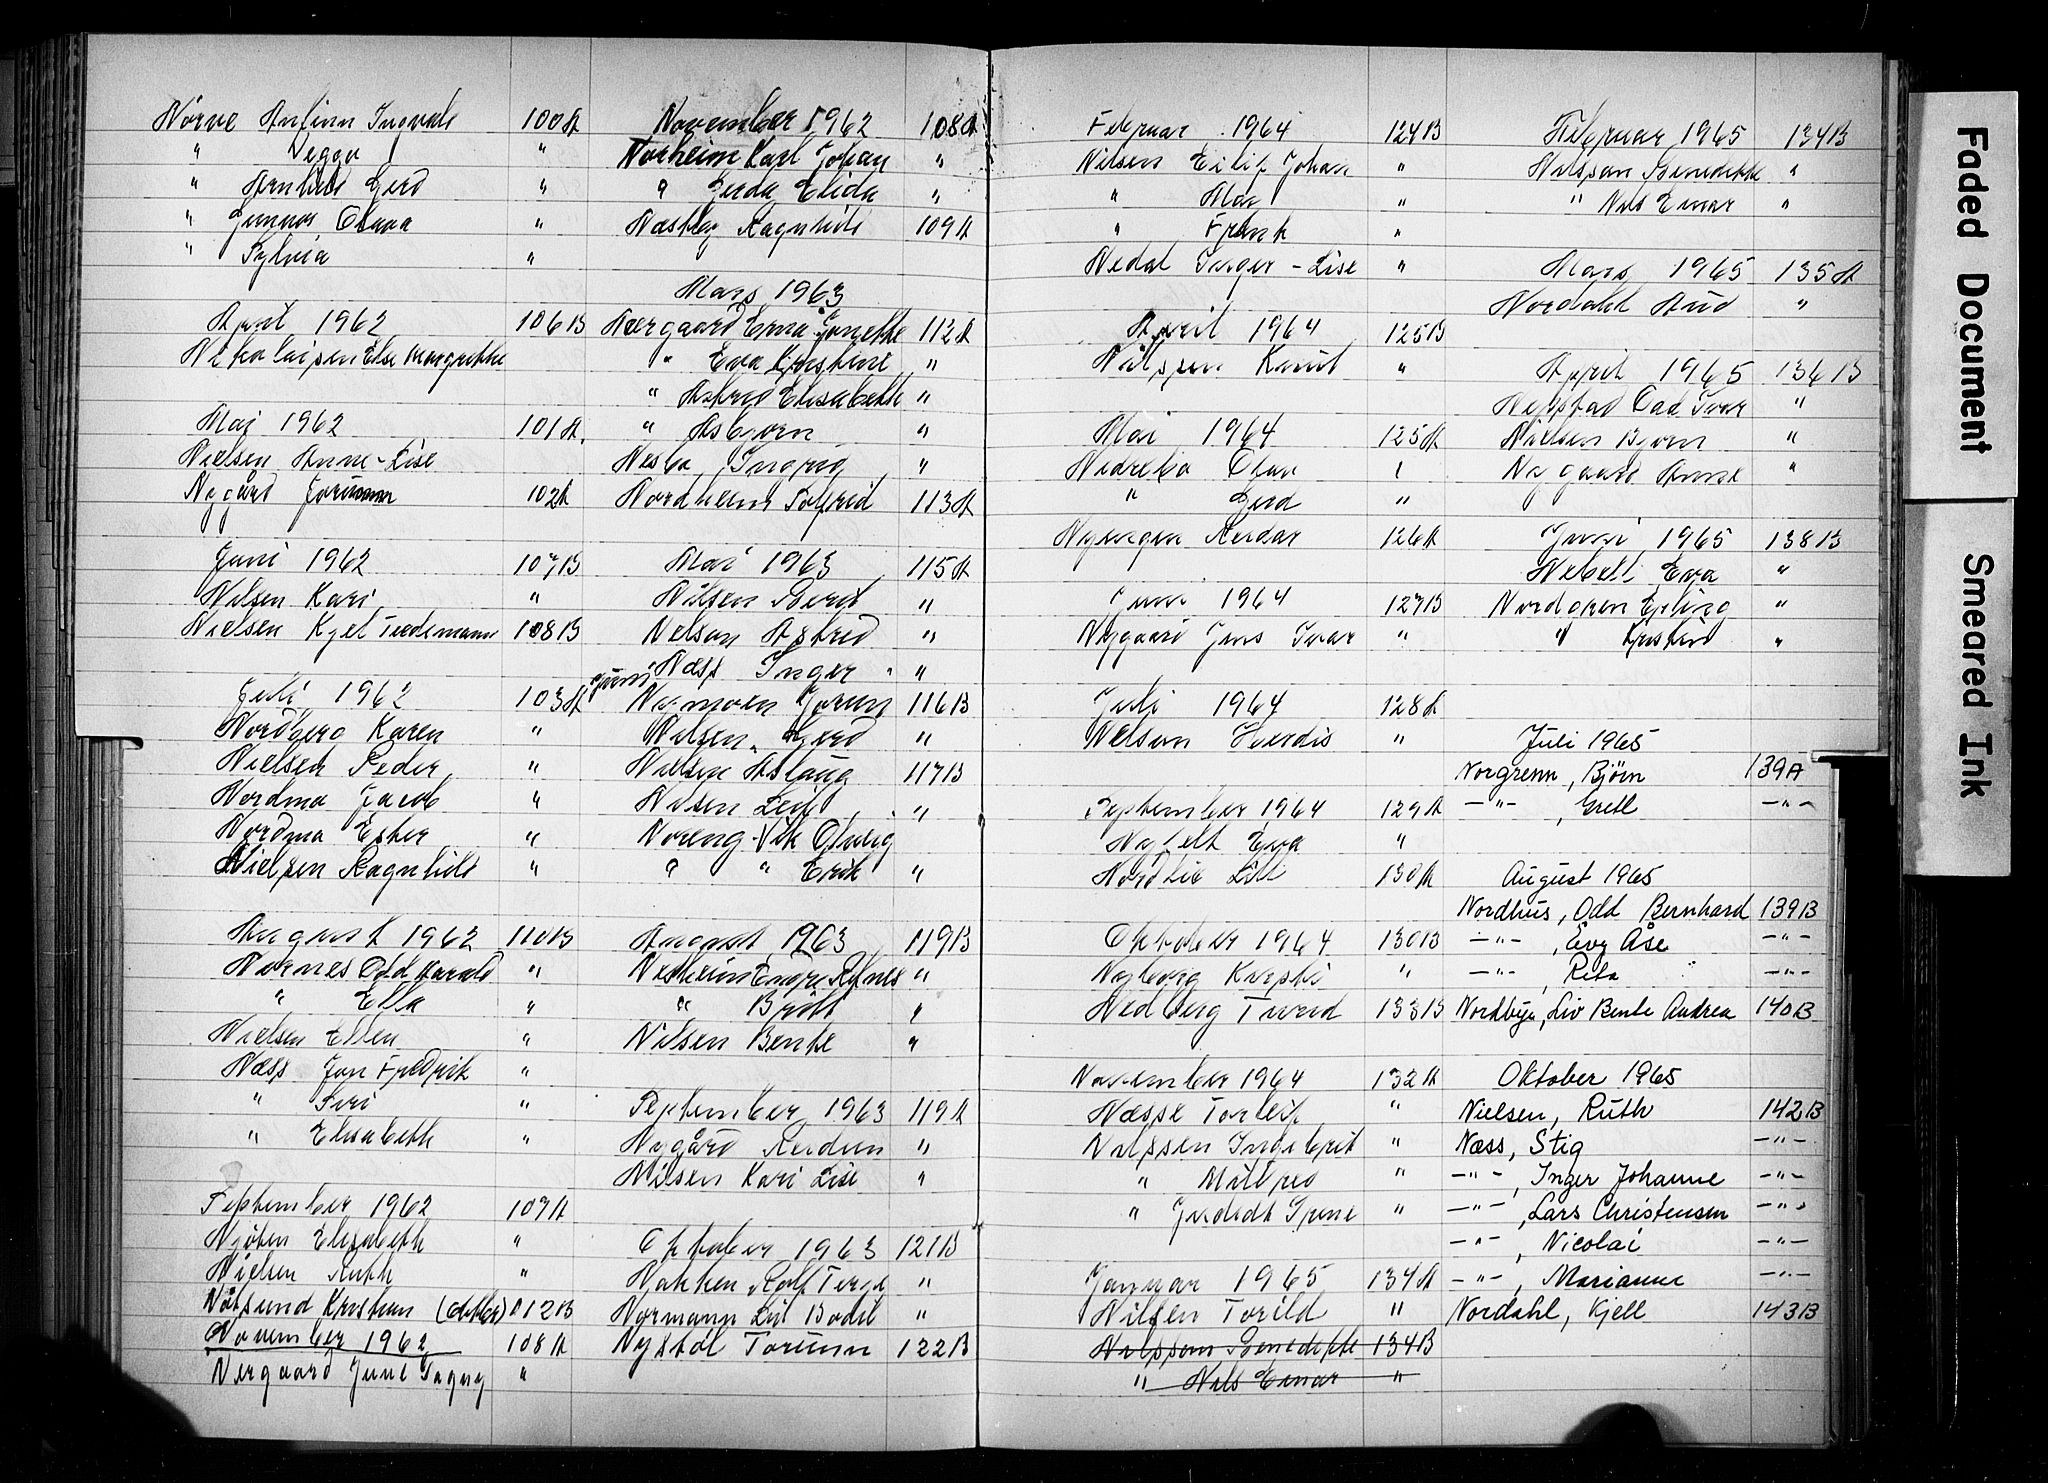 Nørve Arfinn Ingvald 100A
" Viggo "
" Arnhild Gerd "
" Gunnar Olava "
" Sylvia "
April 1962 106B
Nikolaisen Else Margrethe
Mai 1962 101A.
Nielsen Anne-Lise
Nygård Jorunn 102A
Juni 1962 107B
Nilsen Kari "
Nielsen Kjel Tiedemann 108B
Juli 1962 103A
Nordberg Karen "
Nielsen Peder "
Nordmo Jacob "
Nordmo Ester "
Nielsen Ragnhild "
August 1962 110B
Nornes Odd Harald "
" Ella "
Nielsen Ellen "
Næss Jan Fredrik "
" Siri "
" Elisabeth "
September 1962 107A
Njøten Elisabeth "
Nielsen Ruth "
Nøtsund Kristian (dobbel) 112B
November 1962 108A
Nergaard June Dagny "
November 1962 108A
Norheim Karl Johan "
" Gerda Elida "
Næsby Ragnhild 109A
Mars 1963
Nergaard Erna Jonette 112A
" Eva Kristine "
" Astrid Elisabeth "
" Asbjørn "
Nesbø Ingrid "
Nordheim Solfrid 113A
Mai 1963 115A
Nilsen Berit "
Nelson Astrid "
Næss Inger "
juni Nymoen Jorun 116B
Nilsen Gerd "
Nielsen Aslaug 117B
Nilsen Leif "
Noreng-Vik Solveig
" " Erik "
August 1963 119B
Nesheim Endre Refnes "
" Bjørt "
Nilsen Bente "
September 1963 119A
Nygård Reidun "
Nilsen Kari Lise "
Oktober 1963 121B
Nakken Rolf Terje "
Normann Liv Bodil "
Nystøl Torunn 122B
Februar 1964 124B
Nilsen Eilif Johan "
" Mai "
" Frank "
Nedal Inger-Lise "
April 1964 125B
Nilssen Knut "
Mai 1964 125A
Nedrebø Olav "
" Gerd "
Nyengen Reidar 126A
Juni 1964 127B
Nygaard Jens Ivar "
Juli 1964 128A
Nelson Herdis "
September 1964 129A
Nyfelt Eva "
Nordlie Lill 130A
Oktober 1964 130B
Nyborg Kirsti "
Nedberg Turid 133B
November 1964 132A
Næsse Torleif "
Nilssen Ingebrit "
" Milfred "
" "
Januar 1965 134A
Nilsen Torild "
Nilsson Benedikte 134B
" Nils Einar "
Februar 1965 134B
Nilsson Benedikte "
" Nils Einar "
Mars 1965 135A
Nordahl Aud "
April 1965 136B
Nesstad Odd Ivar "
Nielsen Bjørn "
Nygaard Anne "
Juni 1965 138B
Nebell Eva "
Nordgren Erling "
" Kristin "
Juli 1965
Norgrenn, Bjørn 139A
—"—, Gretl —"—
August 1965
Nordhus, Odd Bernhard 139B
—"—, Evy Åse —"—
—"—, Rita —"—
Nordbye, Liv Bente Andrea 140B
Oktober 1965
Nielsen, Ruth 142B
Næss, Stig —"—
—"—, Inger Johanne —"—
—"—, Lars Christensen —"—
—"—, Nicolai —"—
—"—, Marianne —"—
Nordahl, Kjell 143B
Faded Document
Smeared Ink